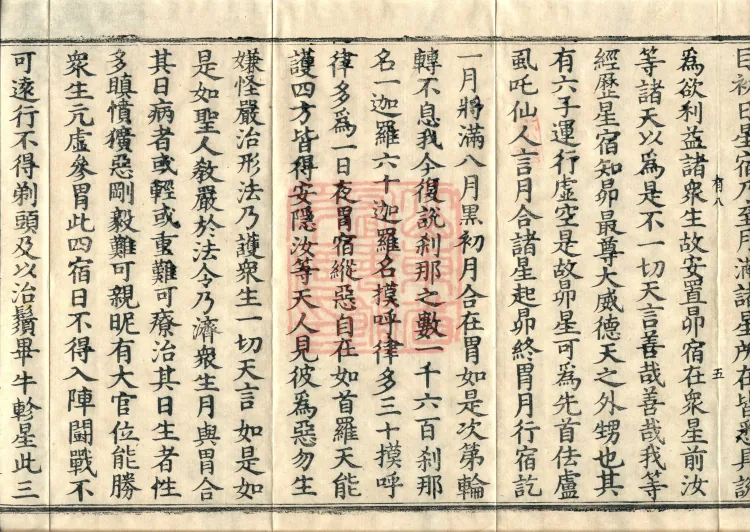 初日星宿乃至月滿諸星所在皆悉具說
有八 五
爲欲利益諸衆生故安置昴宿在衆星前汝
等諸天以爲是不一切天言善哉善哉我等
經歷星宿知昴最尊大威德天之外甥也其
有六子運行虛空是故昴星可爲先首佉盧
虱吒仙人言月合諸星起昴終胃月行宿訖
一月將滿八月黑初月合在胃如是次第輪
轉不息我今復說刹那之數一千六百刹那
名一迦羅六十迦羅名摸呼律多三十摸呼
律多爲一日夜胃宿縱惡自在如首羅天能
護四方皆得安隱汝等天人見彼爲惡勿生
嫌怪嚴治形法乃護衆生一切天言如是如
是如聖人教嚴於法令乃濟衆生月與胃合
其日病者或輕或重難可療治其日生者性
多瞋憤獷惡剛毅難可親昵有大官位能勝
衆生亢虛參胃此四宿日不得入陣鬪戰不
可遠行不得剃頭及以治鬚畢牛軫星此三